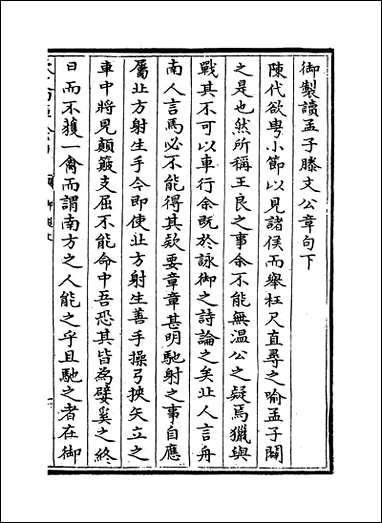 御製讀孟子滕文公章句下
陳代欲㽕小節以見諸侯而舉枉尺直尋之喻孟子闢
之是也然所稱王良之事余不能無温公之疑焉獵與
戰其不可以車行余既於詠御之詩論之矣北人言舟
南人言馬必不能得其欵要章章甚明馳射之事自應
屬北方射生手今即使北方射生善手操弓挾矢立之
車中將見顛簸支屈不能命中吾恐其皆為嬖奚之終
日而不獲一禽而謂南方之人能之乎且馳之者在御